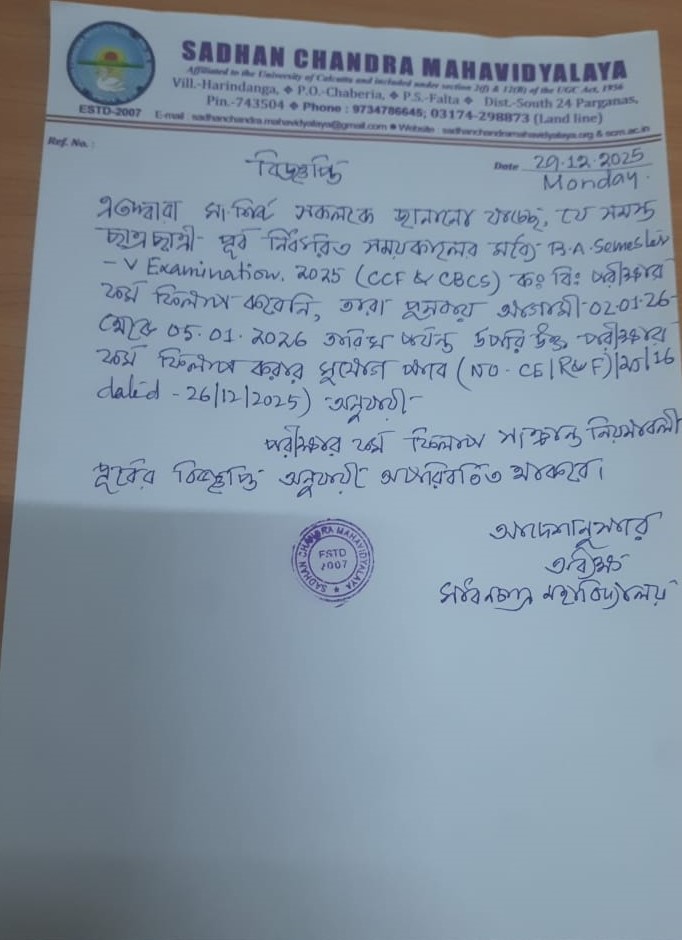 SADHAN CHANDRA MAHAVIDYALAYA
Affiliated to the University of Calcutta and included under section 2(f) & 12(B) of the UGC Act, 1956
Vill.-Harindanga, ❖ P.O.-Chaberia, ❖ P.S.-Falta ❖ Dist.-South 24 Parganas,
Pin.-743504 ❖ Phone : 9734786645; 03174-298873 (Land line)
ESTD-2007 E-mail : sadhanchandra.mahavidyalaya@gmail.com Website : sadhanchandramahavidyalaya.org & scm.ac.in
Ref. No. :
Date 29.12.2025
Monday.
বিজ্ঞপ্তি
এতদ্বারা সংশ্লিষ্ট সকলকে জানানো যাচ্ছে, যে সমস্ত
ছাত্রছাত্রী পূর্ব নির্ধারিত সময়কালের মধ্যে B.A. Semester
- V Examination, 2025 (CCF & CBCS) কঃ বিঃ পরীক্ষার
ফর্ম ফিলাপ করেনি, তারা পুনরায় আগামী 02.01.26
থেকে 05.01.2026 তারিখ পর্যন্ত উপরি উক্ত পরীক্ষার
ফর্ম ফিলাপ করার সুযোগ পাবে (NO - CE/R&F)/20/16
dated - 26/12/2025) অনুযায়ী
পরীক্ষার ফর্ম ফিলাপ সংক্রান্ত নিয়মাবলী
পূর্বের বিজ্ঞপ্তি অনুযায়ী অপরিবর্তিত থাকবে।
আদেশানুসারে
অধ্যক্ষ
সাধনচন্দ্র মহাবিদ্যালয়
SADHAN CHANDRA MAHAVIDYALAYA
ESTD
2007